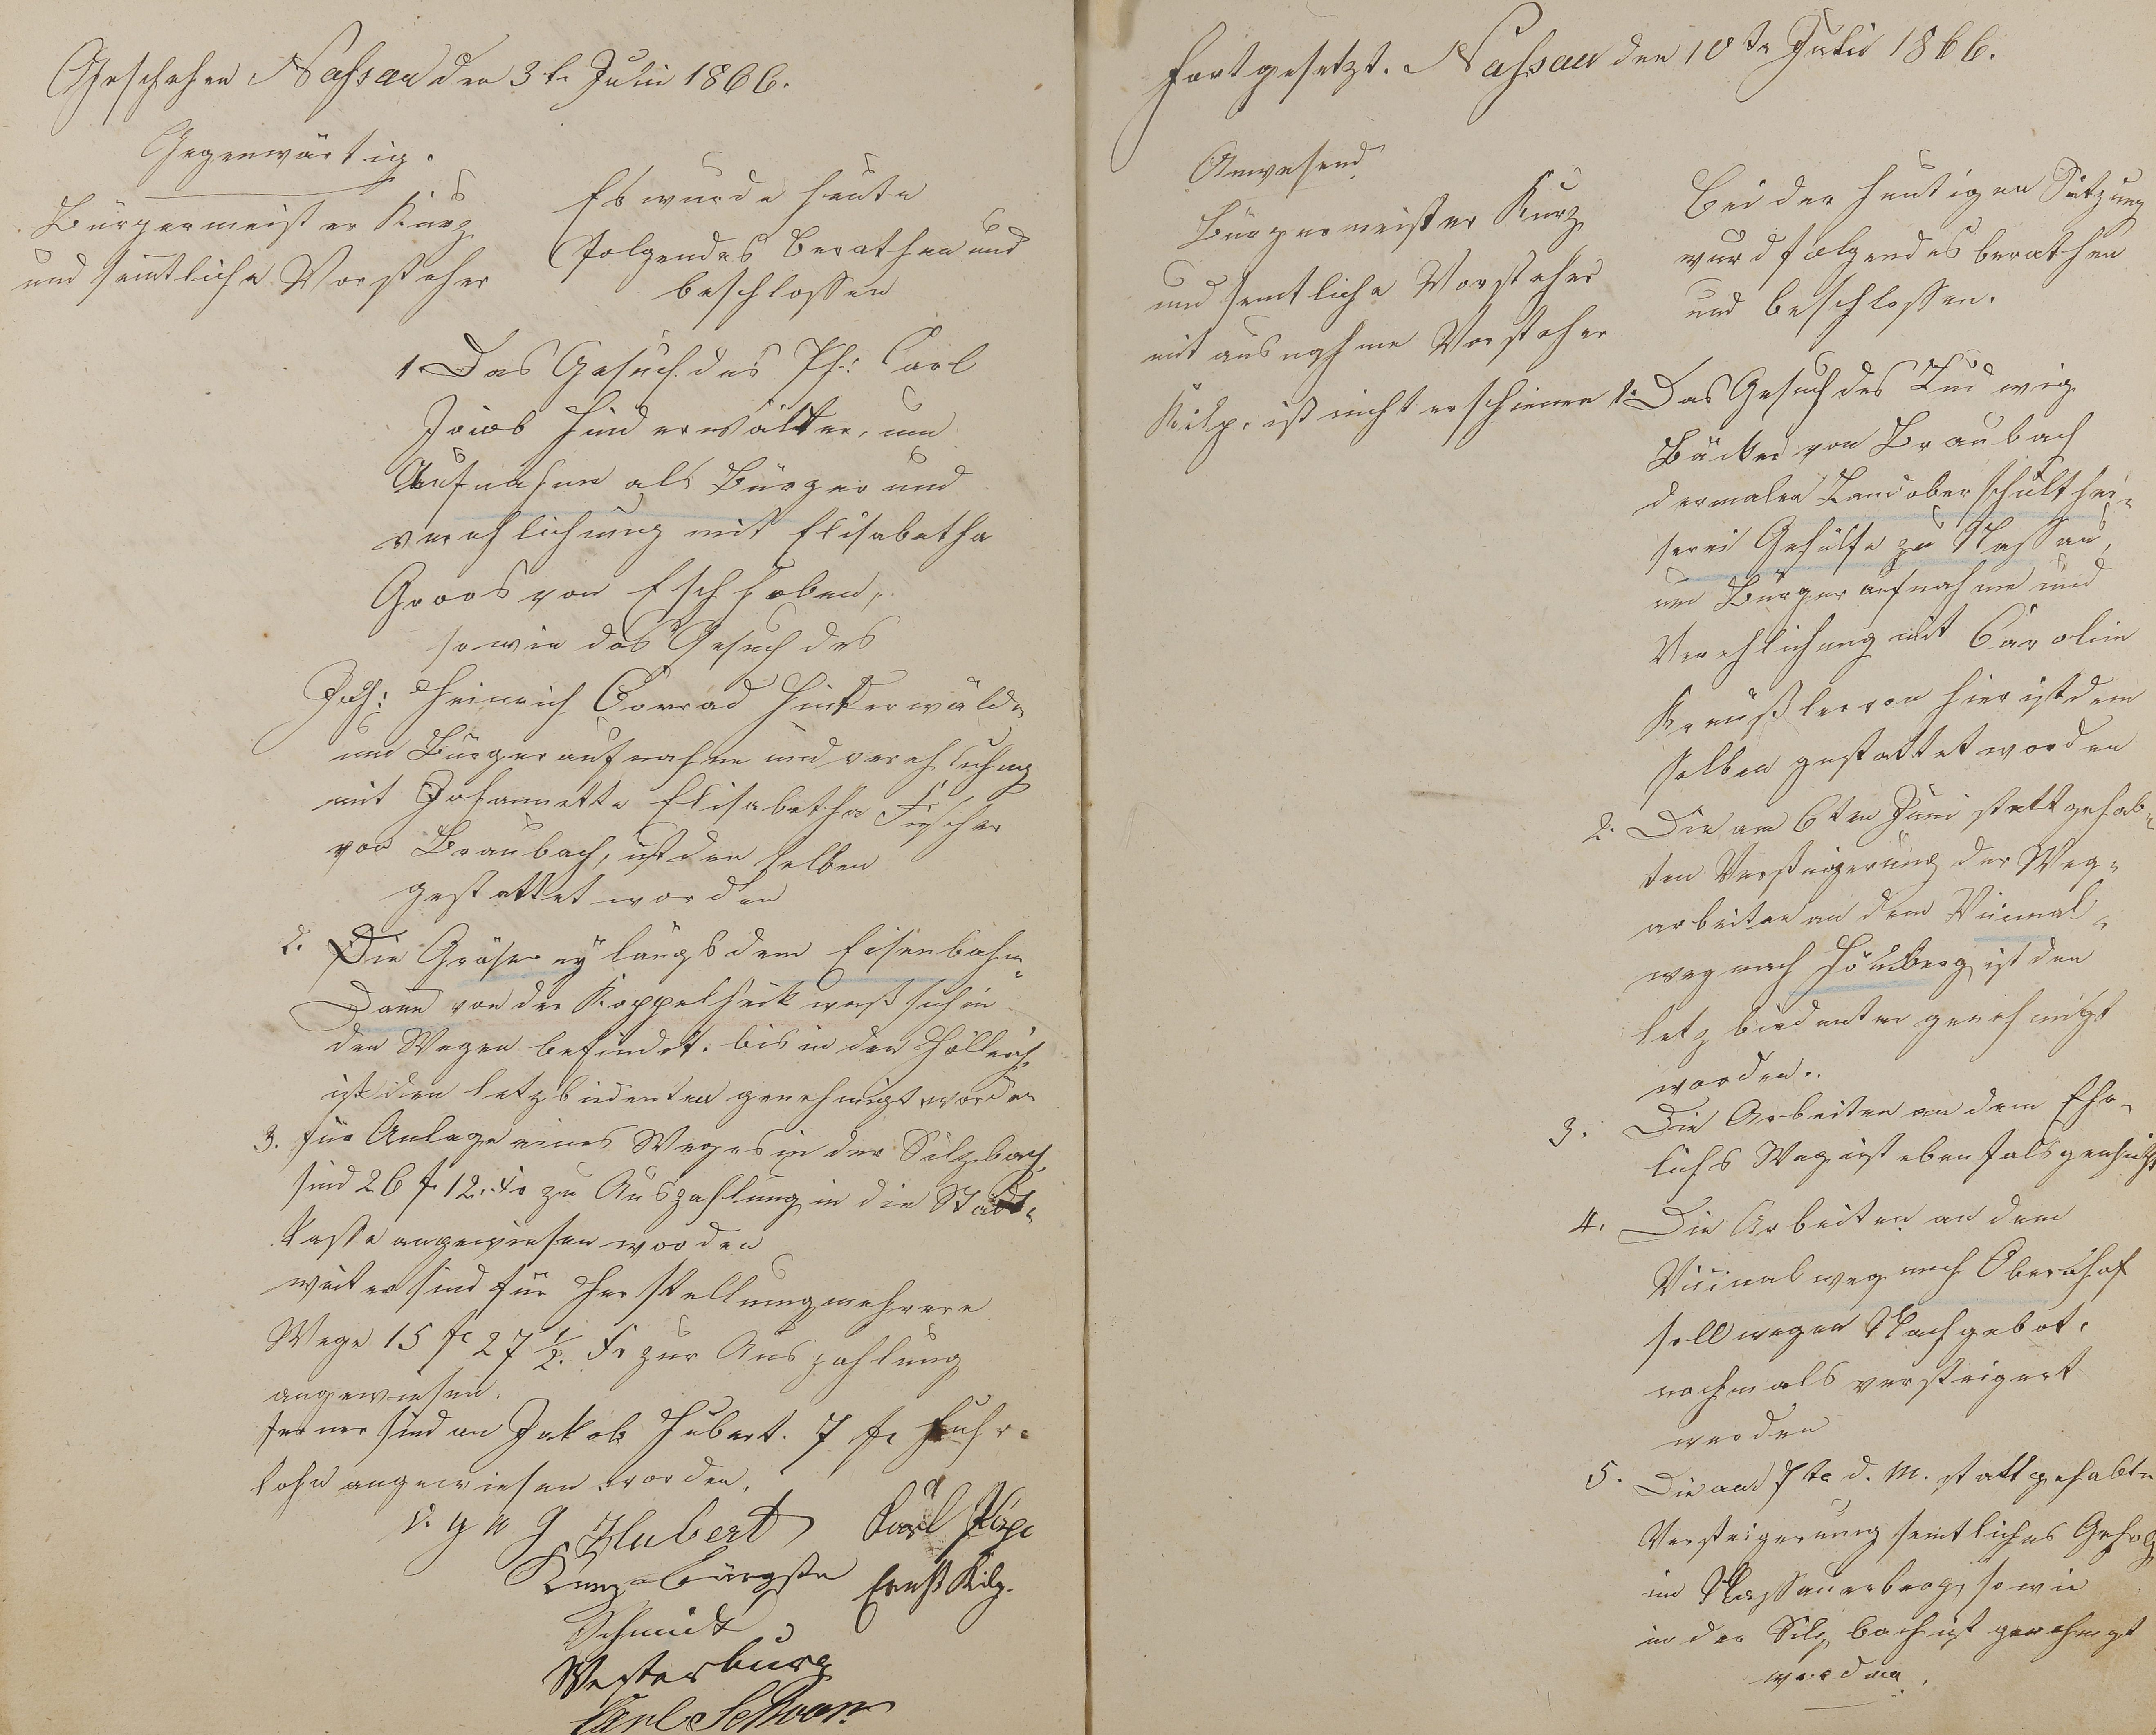 Geschehen Nassau den 3t. Juli 1866.
Gegenwärtig.
Bürgermeister Kurz
und semtliche Vorsteher
Es wurde heute
folgendes berathen und
beschlossen
1. Das Gesuch des Ph: Carl
Jacob Hinderwälter, um
Aufnahme als Bürger und
verehlichung mit Elisabetha
Groos von Eschhoben,
sowie das Gesuch des
Joh: Heinrich Conrad Hinterwälder
um Bürgeraufnahme und verehlichung
mit Johannette Elisabetha Fischer
von Braubach, ist den selben
gestattet worden
2. Die Gräserey längs dem Eisenbahn-
Dam von der Koppelheck waß sich in
den Wegen befindet. bis in den Hollerich
ist den letzbiedenten genehmigt worden
3. für Anlage eines Weges in der Sulzbach
sind 26 f 12 xr zu Auszahlung in die Stadt-
kasse angewiesen worden
weiter sind für Herstellung mehrere
Wege 15 f 27 1/2 xr zur Auszahlung
angewiesen.
ferner sind an Jakob Hubert. 7 f Fuhr-
lohn angewiesen worden.
v. g. u. g.
Hubert
Kurz Bürgstr
Ernst Kilp.
Schmidt
Westerburg
Carl Schwarz
fortgesetzt. Nassau den 10te Juli 1866.
Anwesend
Bürgermeister Kurz
und semtliche Vorsteher
mit ausnahme Vorsteher
Kilp. ist nicht erschienen
Bei der heutigen Sitzung
wurd folgendes berathen
und beschlossen.
1. Das Gesuch des Ludwig
Bäcker von Braubach
dermalen Landoberschulthei-
serei Gehülfe zu Nassau,
um Bürgeraufnahme und
Verehlichung mit Carolin
Kreußler von hier ist dem
selben gestattet worden
2. Die am 6ten Juni stattgehab-
ten Versteigerung der Weg-
arbeiten an dem Vicinal-
weg nach Hömberg ist den
letzbiedenten genehmigt
worden.
3. Die Arbeiten an dem Eho-
lichs Weg ist ebenfals genehmigt
4. Die Arbeiten an dem
Vicinalweg nach Obernhof
soll wegen Nachgebot.
nochmals versteigert
werden
5. Die am 7te d. M. stattgehabte
Versteigerung semtliches Geholz
im Nassauerberg, sowie
in der Sulzbach ist genehmigt
worden.